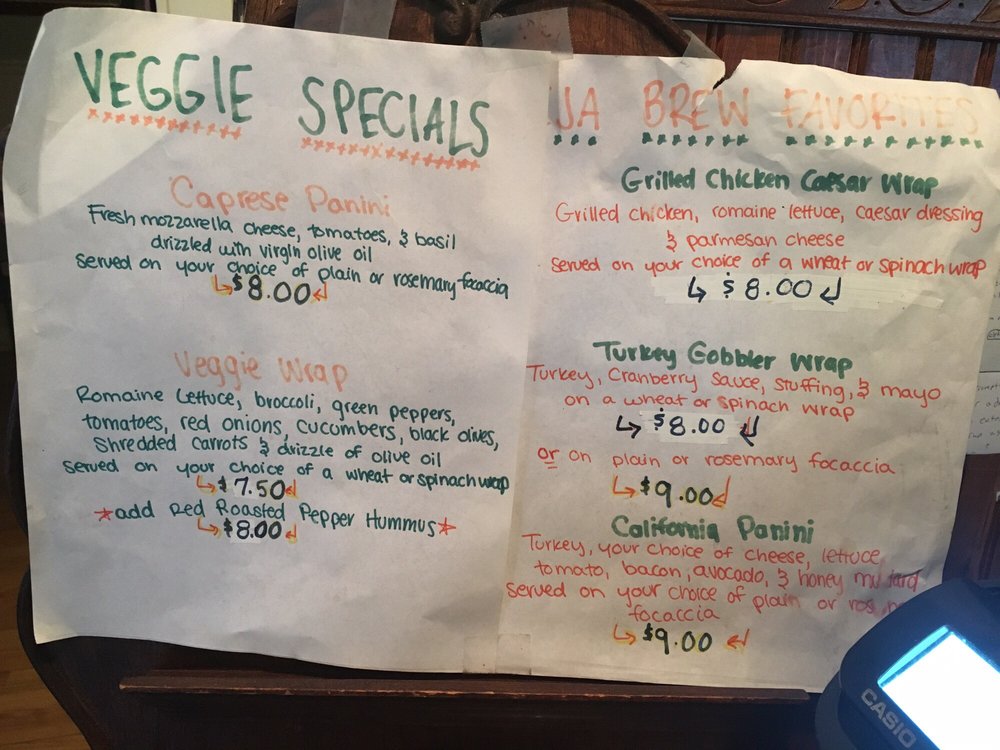 VEGGIE SPECIALS
Caprese Panini
Fresh mozzarella cheese, tomatoes, & basil
drizzled with virgin olive oil
served on your choice of plain or rosemary focaccia
$8.00
Veggie Wrap
Romaine Lettuce, broccoli, green peppers,
tomatoes, red onions, cucumbers, black olives,
Shredded carrots & drizzle of olive oil
served on your choice of a wheat or spinach wrap
$7.50
*add Red Roasted Pepper Hummus*
$8.00
JA BREW FAVORITES
Grilled Chicken Caesar Wrap
Grilled chicken, romaine lettuce, caesar dressing
& parmesan cheese
served on your choice of a wheat or spinach wrap
$8.00
Turkey Gobbler Wrap
Turkey, Cranberry Sauce, Stuffing, & mayo
on a wheat or spinach wrap
$8.00
or on plain or rosemary focaccia
$9.00
California Panini
Turkey, your choice of cheese, lettuce,
tomato, bacon, avocado, & honey mustard
served on your choice of plain or
focaccia
$9.00
CASIO